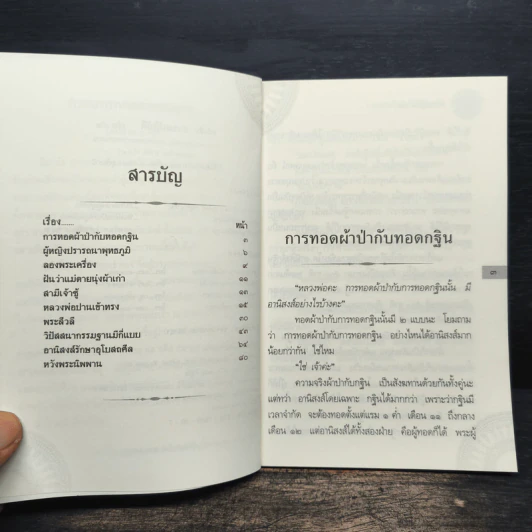 สารบัญ
เรื่อง...... หน้า
การทอดผ้าป่ากับทอดกฐิน ๓
ผู้หญิงปรารถนาพุทธภูมิ ๖
ลองพระเครื่อง ๙
ฝันว่าแม่ตายนุ่งผ้าเก่า ๑๑
สามีเจ้าชู้ ๑๓
หลวงพ่อปานเข้าทรง ๑๕
พระสีวลี ๒๓
วิปัสสนากรรมฐานมีกี่แบบ ๔๓
อานิสงส์รักษาอุโบสถศีล ๖๔
หวังพระนิพพาน ๘๐
การทอดผ้าป่ากับทอดกฐิน
๓
"หลวงพ่อคะ การทอดผ้าป่ากับการทอดกฐินนั้น มี
อานิสงส์อย่างไรบ้างคะ"
ทอดผ้าป่ากับการทอดกฐินนั้นมี ๒ แบบนะ โยมถาม
ว่า การทอดผ้าป่ากับการทอดกฐิน อย่างไหนได้อานิสงส์มาก
น้อยกว่ากัน ใช่ไหม
"ใช่ เจ้าค่ะ"
ความจริงผ้าป่ากับกฐิน เป็นสังฆทานด้วยกันทั้งคู่นะ
แต่ทว่า อานิสงส์โดยเฉพาะ กฐินได้มากกว่า เพราะว่ากฐินมี
เวลาจำกัด จะต้องทอดตั้งแต่แรม ๑ ค่ำ เดือน ๑๑ ถึงกลาง
เดือน ๑๒ แต่อานิสงส์ได้ทั้งสองฝ่าย คือผู้ทอดก็ได้ พระผู้